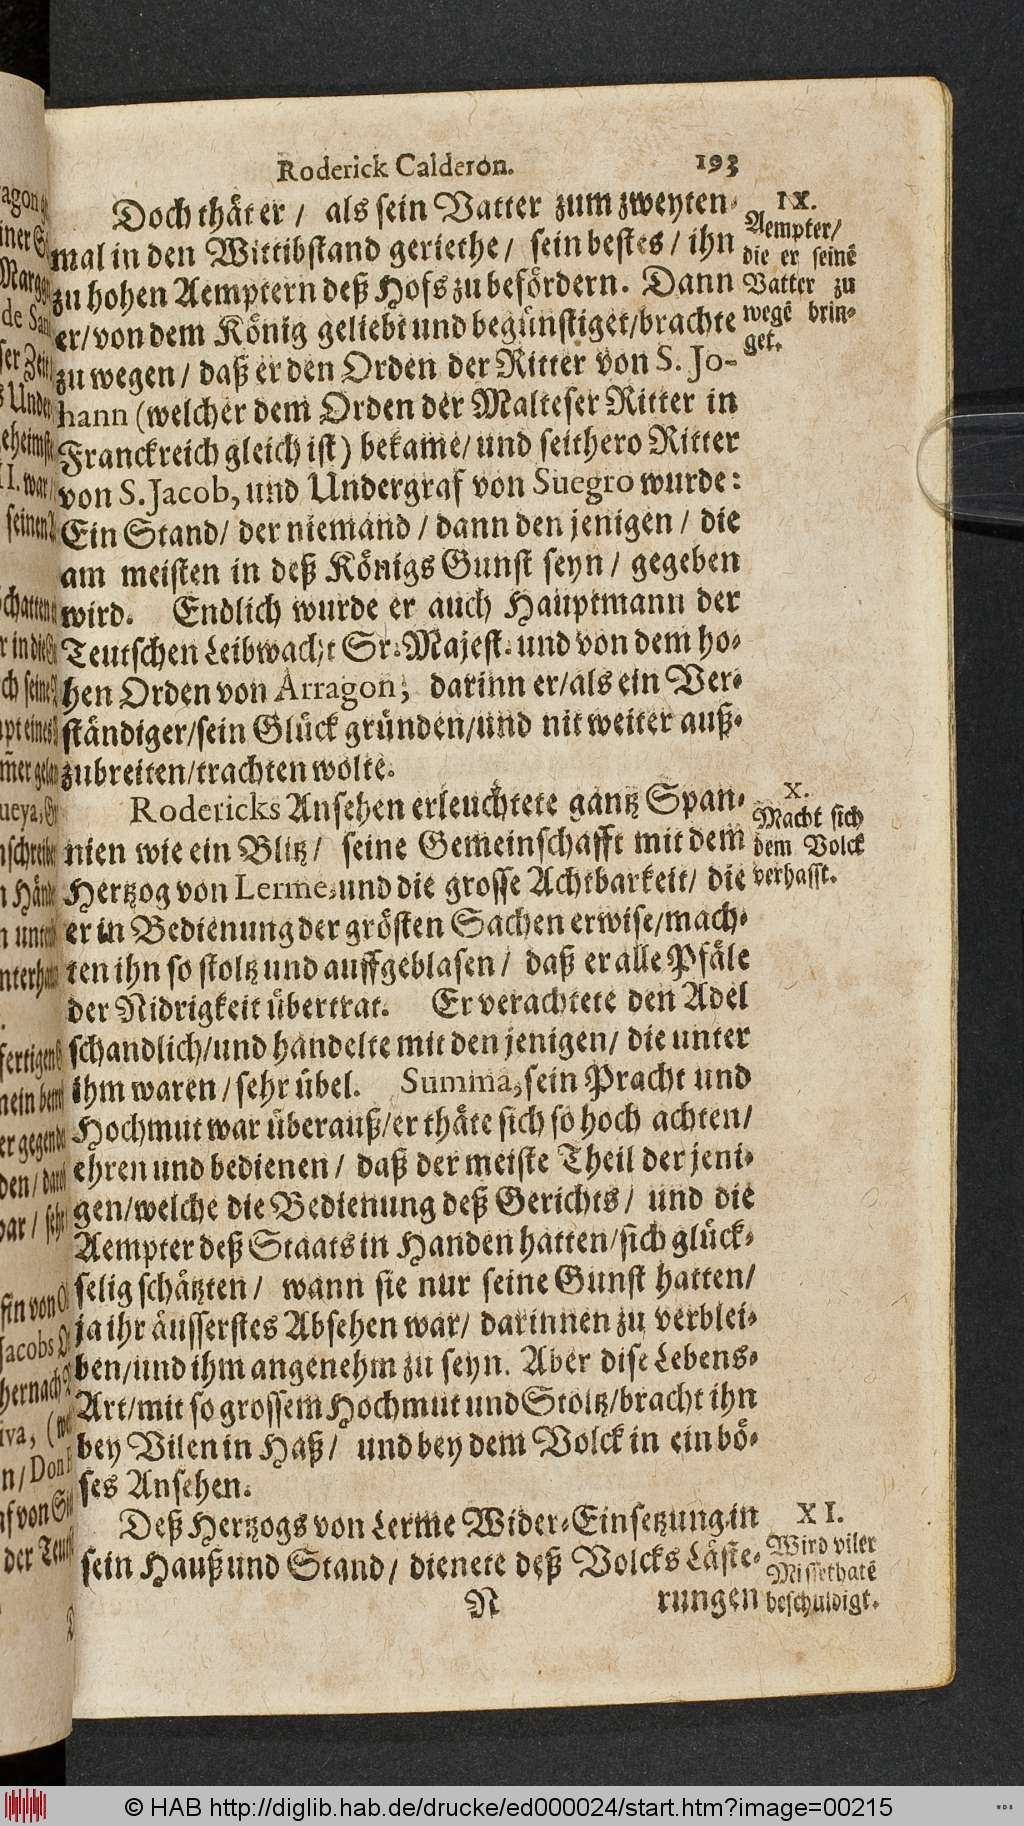 Roderick Calderon. 193
Doch thät er / als sein Vatter zum zweyten-
mal in den Wittibstand geriethe / sein bestes / ihn
zu hohen Aemptern deß Hofs zu befördern. Dann
er / von dem König geliebt und begünstiget / brachte
zu wegen / daß er den Orden der Ritter von S. Jo-
hann (welcher dem Orden der Malteser Ritter in
Franckreich gleich ist) bekame / und seithero Ritter
von S. Jacob, und Undergraf von Suegro wurde:
Ein Stand / der niemand / dann den jenigen / die
am meisten in deß Königs Gunst seyn / gegeben
wird. Endlich wurde er auch Hauptmann der
Teutschen Leibwacht Sr. Majest. und von dem ho-
hen Orden von Arragon; darinn er / als ein Ver-
ständiger / sein Glück gründen / und nit weiter auß-
zubreiten / trachten wolte.
IX.
Aempter /
die er seinē
Vatter zu
wegē brin-
get.
Rodericks Ansehen erleuchtete gantz Span-
nien wie ein Blitz / seine Gemeinschafft mit dem
Hertzog von Lerme, und die grosse Achtbarkeit / die
er in Bedienung der grösten Sachen erwise / mach-
ten ihn so stoltz und auffgeblasen / daß er alle Pfäle
der Nidrigkeit übertrat. Er verachtete den Adel
schandlich / und handelte mit den jenigen / die unter
ihm waren / sehr übel. Summa, sein Pracht und
Hochmut war überauß / er thäte sich so hoch achten /
ehren und bedienen / daß der meiste Theil der jeni-
gen / welche die Bedienung deß Gerichts / und die
Aempter deß Staats in Handen hatten / sich glück-
selig schätzten / wann sie nur seine Gunst hatten /
ja ihr äusserstes Absehen war / darinnen zu verblei-
ben / und ihm angenehm zu seyn. Aber dise Lebens-
Art / mit so grossem Hochmut und Stoltz / bracht ihn
bey Vilen in Haß / und bey dem Volck in ein bö-
ses Ansehen.
X.
Macht sich
dem Volck
verhasst.
Deß Hertzogs von Lerme Wider-Einsetzung in
sein Hauß und Stand / dienete deß Volcks Läste-
XI.
Wird viler
Missethatē
beschuldigt.
N rungen
© HAB http://diglib.hab.de/drucke/ed000024/start.htm?image=00215